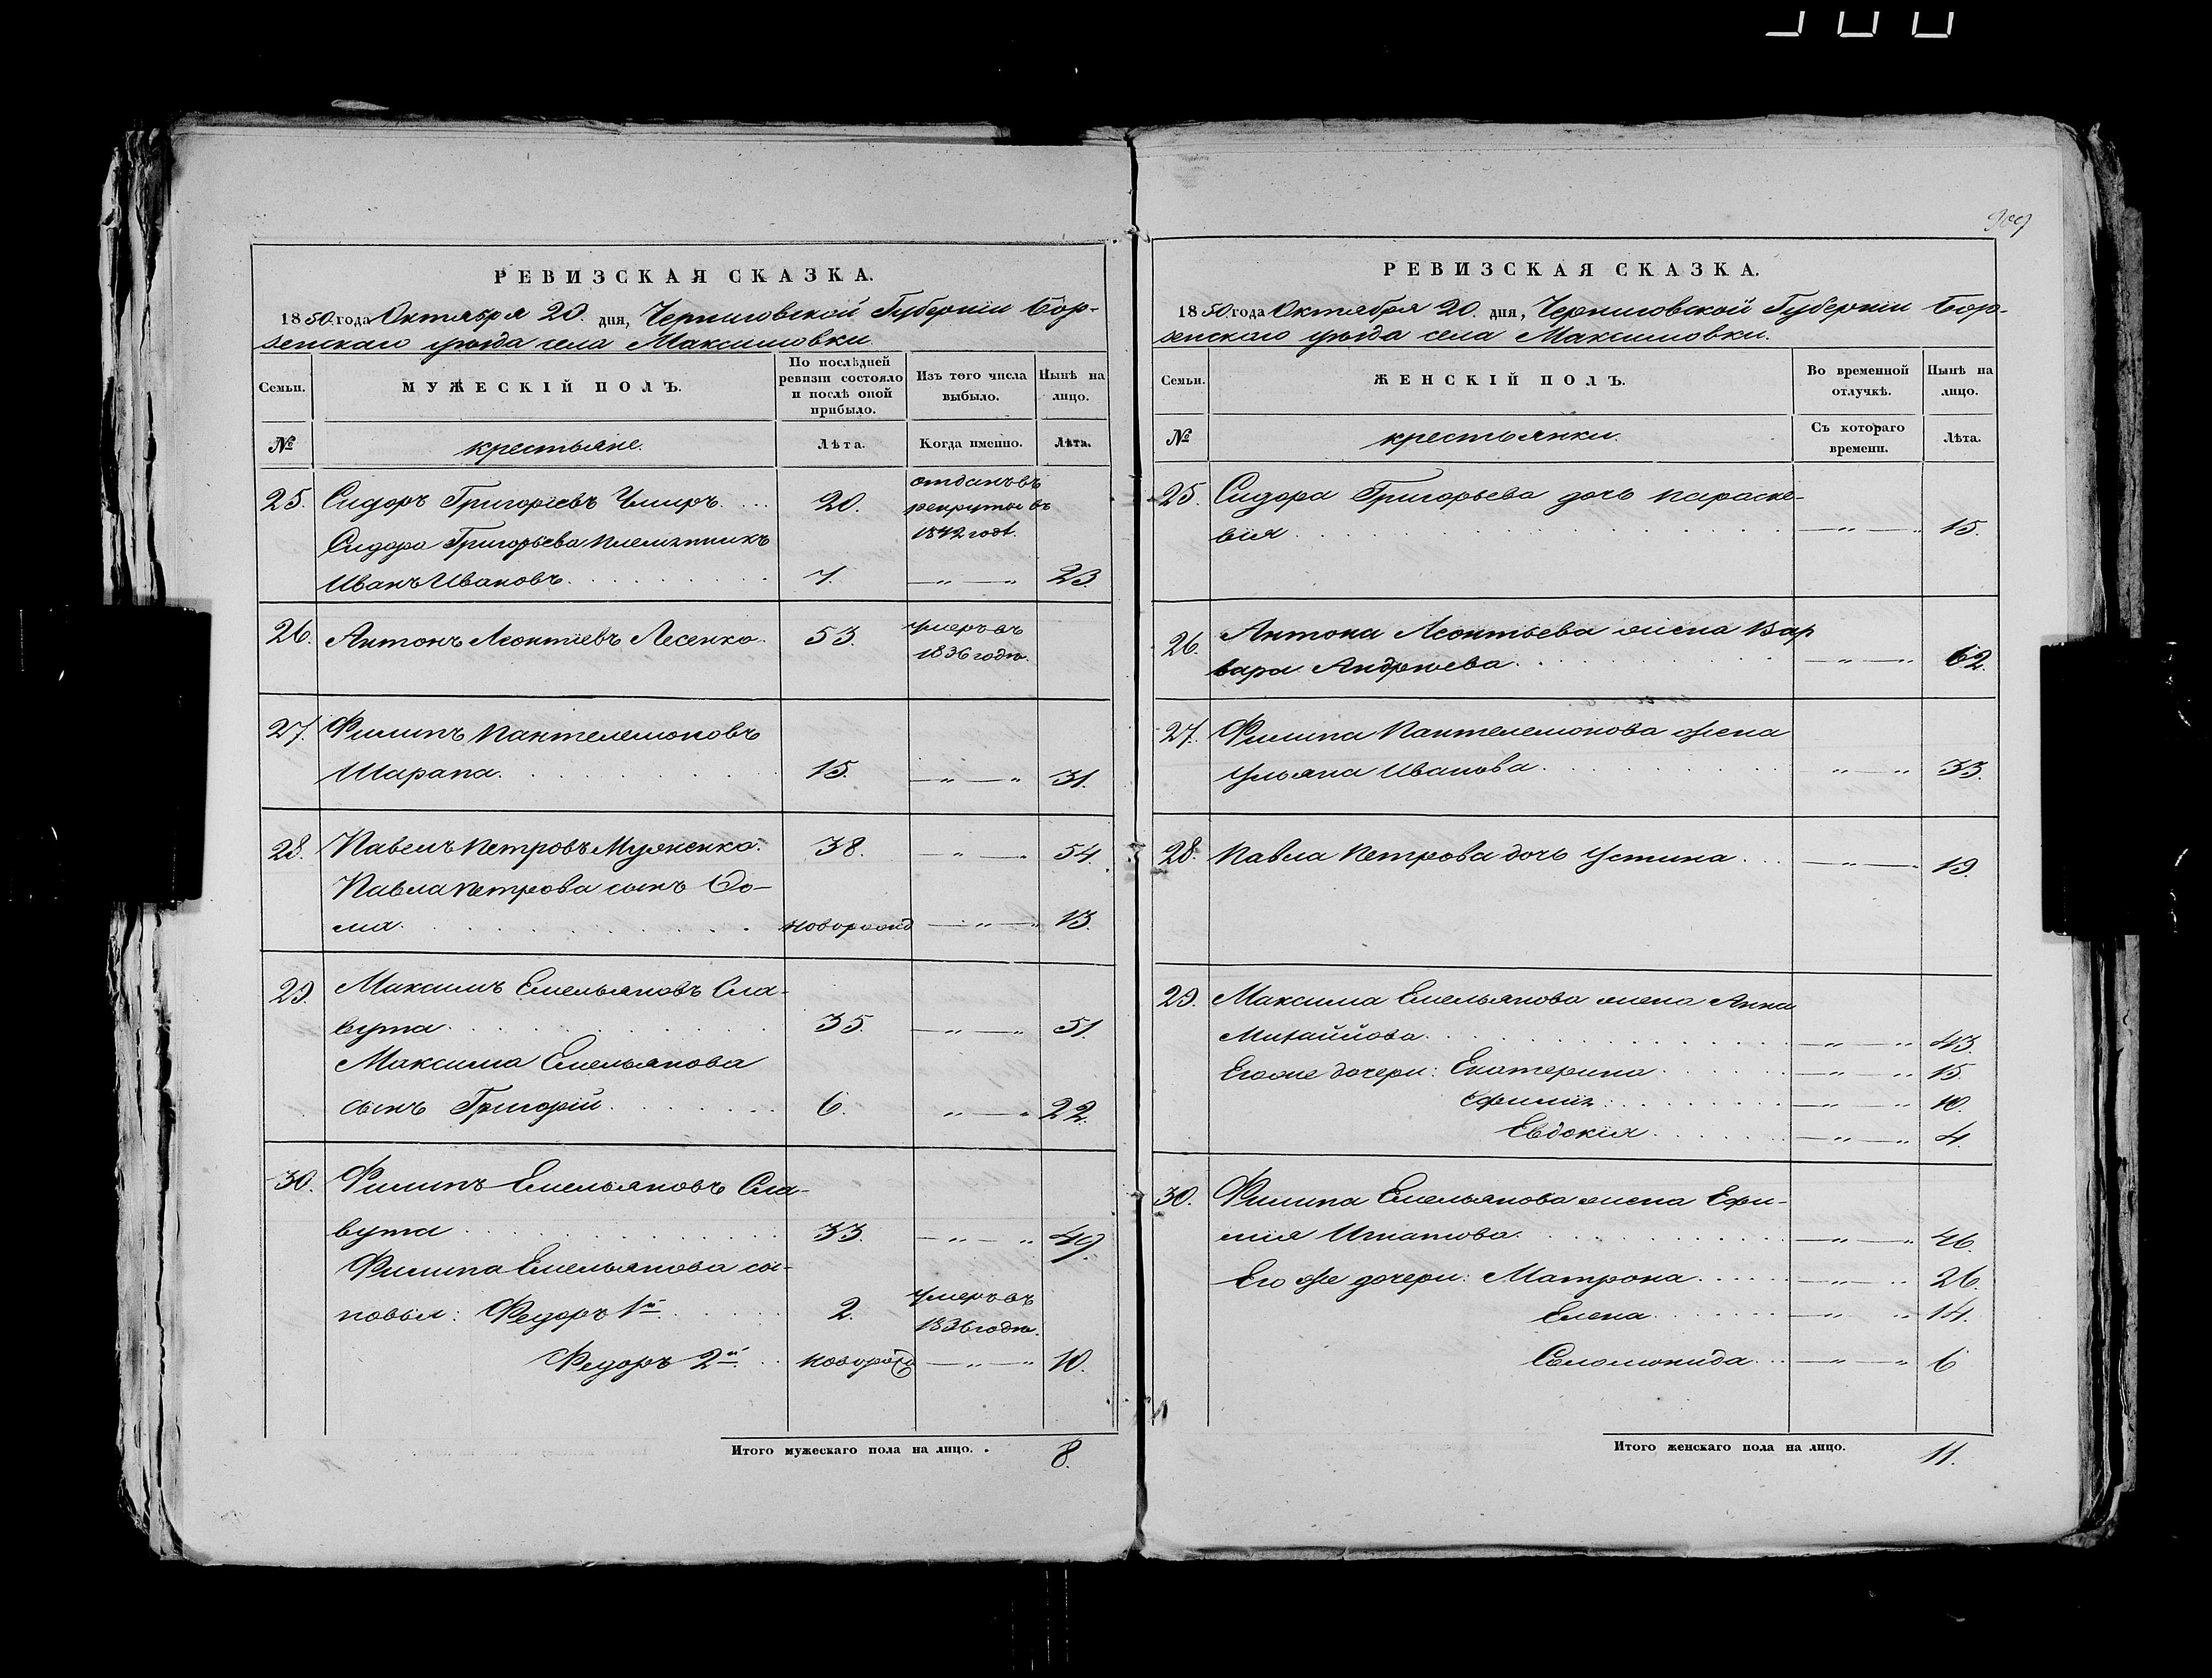 РЕВИЗСКАЯ СКАЗКА.
1850 года Октября 20. дня, Черниговской Губернии Бор-
зенскаго уѣзда села Максимовки.
Семьи.
МУЖЕСКІЙ ПОЛЪ.
По послѣдней ревизіи состояло и послѣ оной прибыло.
Изъ того числа выбыло.
Нынѣ на лицо.
№
крестьяне.
Лѣта.
Когда именно.
Лѣта.
25. Сидоръ Григоріевъ Чмиръ. ... 20. отданъ въ рекруты въ 1842 годѣ.
Сидора Григорьева племянникъ
Иванъ Ивановъ. 7. —〃—〃 23.
26. Антонъ Леонтіевъ Лесенко. 53. умеръ въ 1836 годѣ.
27. Филипъ Пантелемоновъ
Шарапа. 15. —〃—〃 31.
28. Павелъ Петровъ Муяненко. 38. —〃—〃 54.
Павла Петрова сынъ Ѳо-
ма. новорожд —〃—〃 13.
29. Максимъ Емельяновъ Сла-
вута. 35. —〃—〃 51.
Максима Емельянова
сынъ Григорій. 6. 〃—〃 22.
30. Филипъ Емельяновъ Сла-
вута 33. —〃—〃 49.
Филипа Емельянова сы-
новья: Федоръ 1й. 2. умеръ въ 1836 годѣ.
Федоръ 2й. новорожд —〃—〃 10.
Итого мужескаго пола на лицо. . 8.
РЕВИЗСКАЯ СКАЗКА.
1850 года Октября 20. дня, Черниговской Губерніи Бор-
зенскаго уѣзда села Максимовки.
Семьи.
ЖЕНСКІЙ ПОЛЪ.
Во временной отлучкѣ.
Нынѣ на лицо.
№
крестьянки.
Съ котораго времени.
Лѣта.
25. Сидора Григорьева дочь Параске-
вія —〃—〃 15.
26. Антона Леонтьева жена Вар
вара Андреева. —〃—〃 62.
27. Филипа Пантелемонова жена
Ульяна Иванова. 〃—〃 33.
28. Павла Петрова дочь Устина. —〃—〃 19.
29. Максима Емельянова жена Анна
Михайлова. —〃—〃 43.
Его же дочери: Екатерина —〃—〃 15
Ефимія —〃—〃 10.
Евдокія —〃—〃 4.
30. Филипа Емельянова жена Ефи-
мія Игнатова. —〃—〃 46.
Его же дочери: Матрона —〃—〃 26.
Елена 〃—〃 14.
Соломонида —〃—〃 6
Итого женскаго пола на лицо. 11.